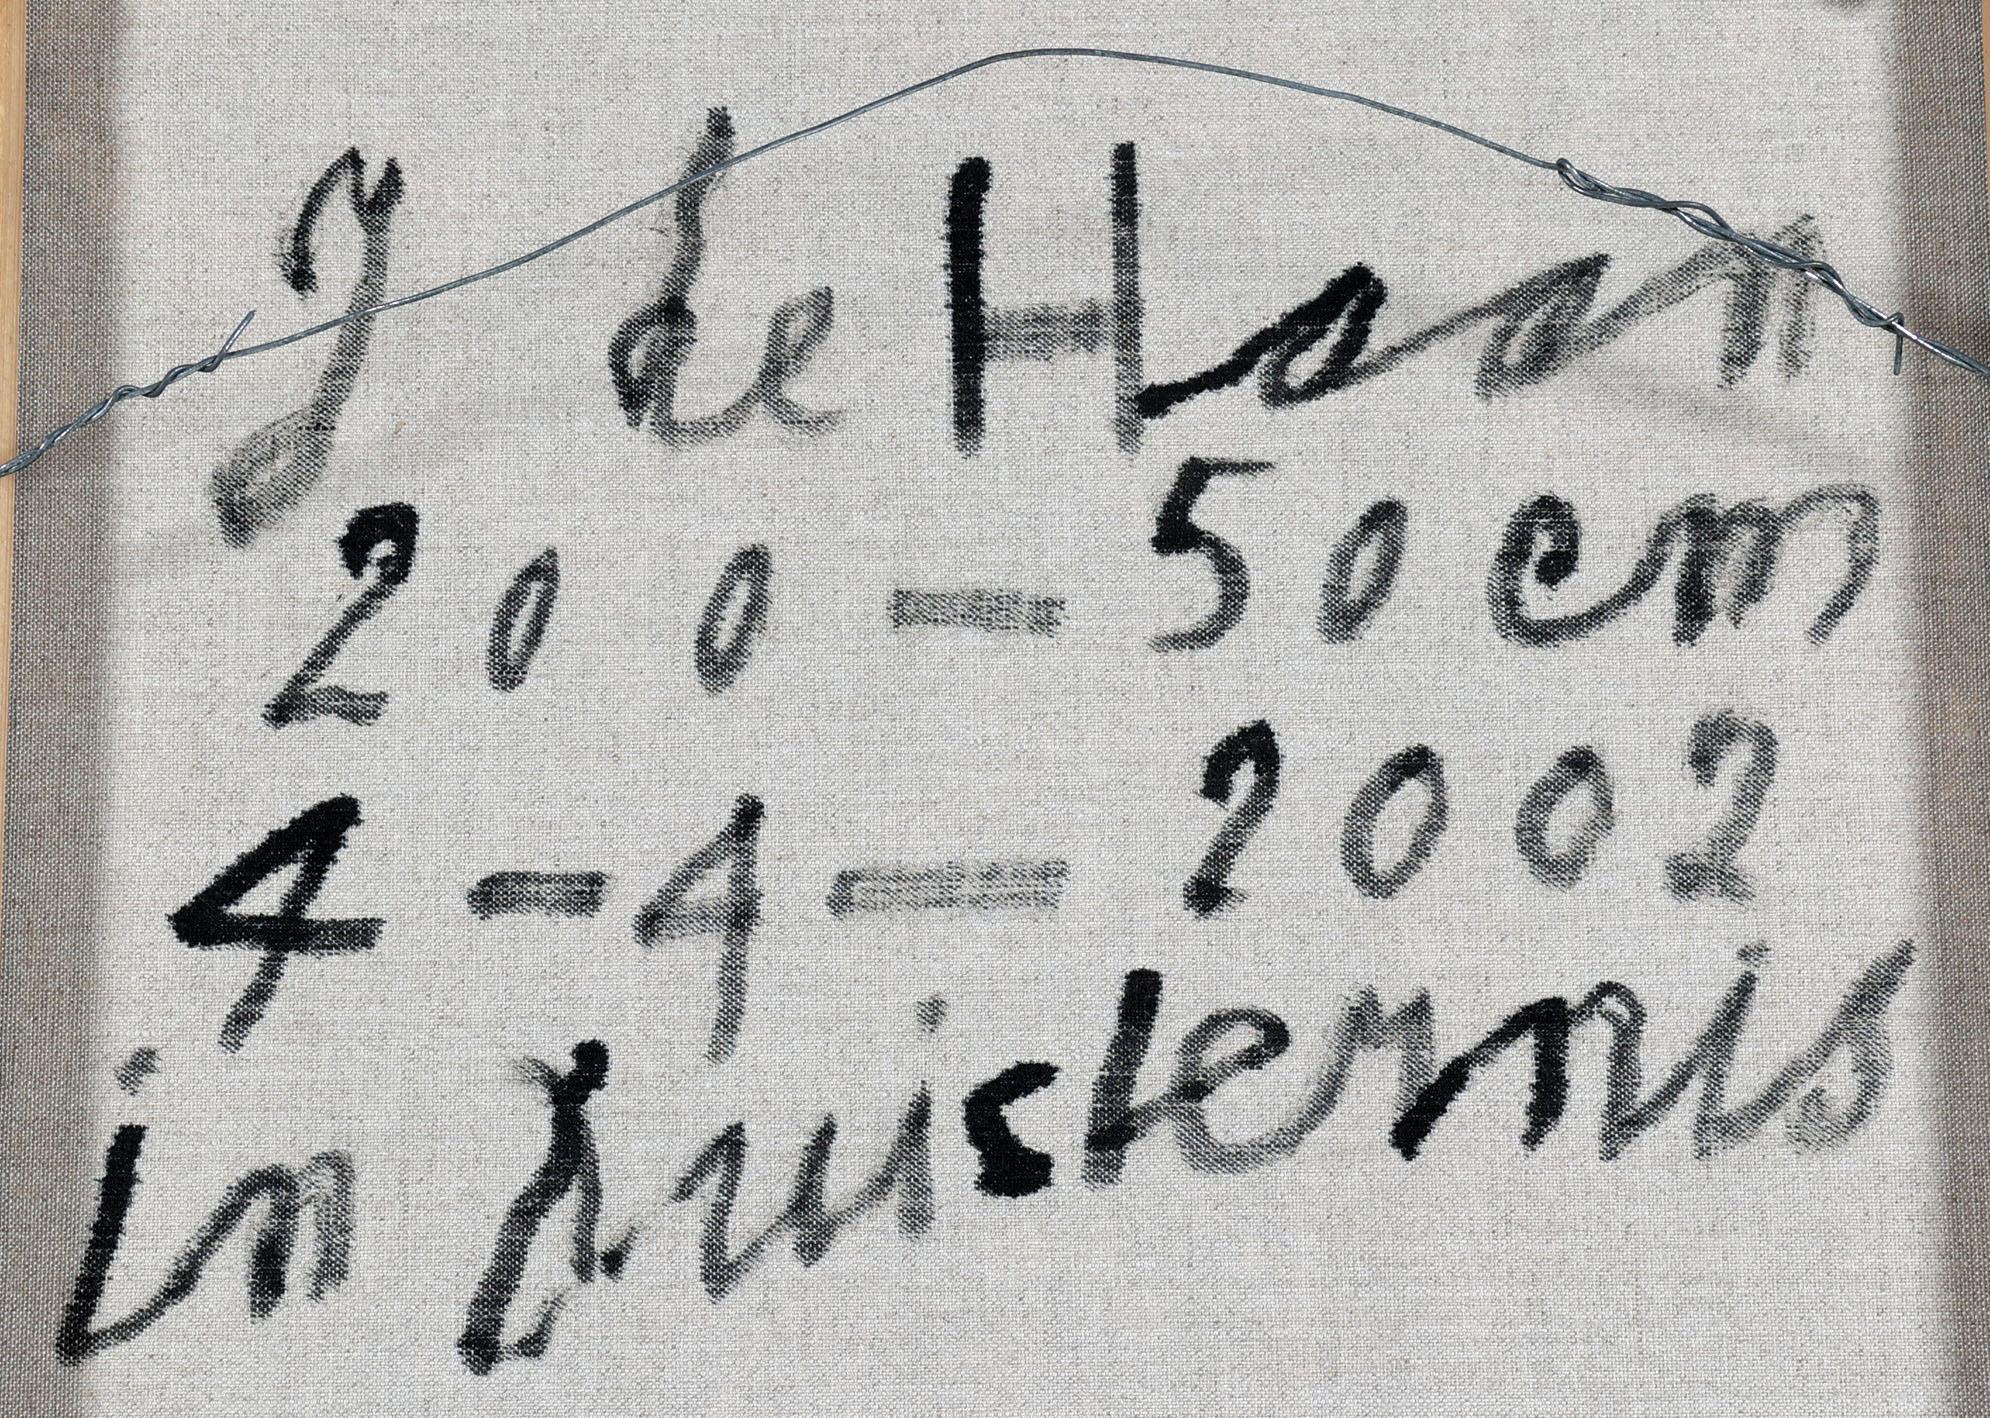 J de Haan
200 - 50 cm
4 - 4 - 2002
in duisternis